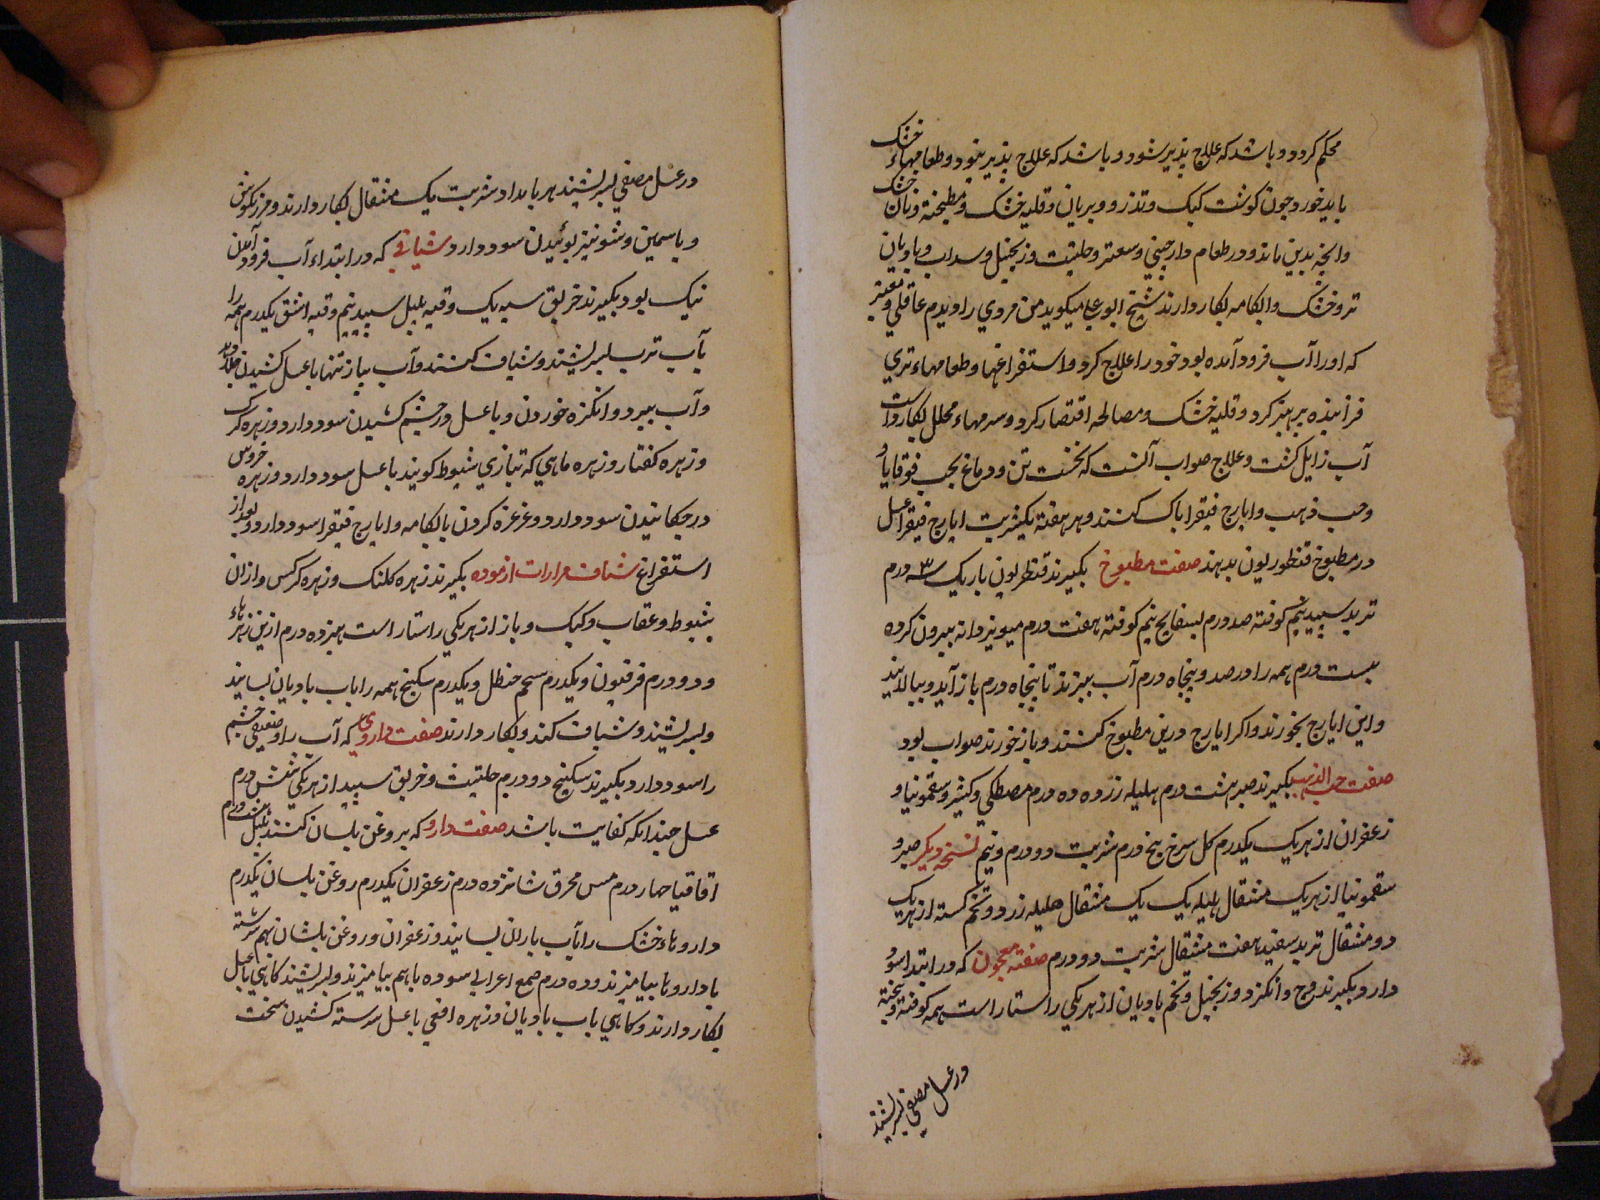 محکم کردد و باشد که علاج پذیر شود و باشد که علاج پذیر نبود و طعامهاء خشک
باید خورد جون کوشت کبک و تذرو و بریان و قلیه خشک و مطبخنه و نان خشک
وانجه بدین ماند و در طعام دارجینی و سعتر و حلتیت و زنجبیل و سداب و بادیان
تر و خشک و ابکامه بکار دارند شیخ ابو علی میکوید من مردی را دیدم عاقل و ممیز
که او را آب فرود آمده بود خود را علاج کرد و استفراغها و طعامهاء تری
فزاینده برهیز کرد و قلیه خشک و مصالحه اقتصار کرد و سرمهاء محلل بکار داشت
آب زایل کشت و علاج صواب آنست که نخست تن و دماغ بحب قوقایا و
وحب ذهب و ایارج فیقرا باک کنند و هر هفته یکشربت ایارج فیقرا عسل
در مطبوخ قنطوریون بدهند صفت مطبوخ بکیرند قنطریون باریک سه درم
تربد سبید نیم کوفته صد درم بسفایج نیم کوفته هفت درم میویز دانه بیرون کرده
بیست درم همه را در صد و پنجاه درم آب ببزند تا پنجاه درم باز آید و ببالایند
و این ایارج بخورند و اکر ایارج درین مطبوخ کنند و باز خورند صواب بود
صفت حب الذهب بکیرند صبر هشت درم هلیله زرد ده درم مصطکی و کثیرا و سقمونیا و
زعفران از هر یک یکدرم کل سرخ پنج درم شربت دو درم و نیم نسخه دیکر صبر و
سقمونیا از هر یک مثقال هلیله یک یک مثقال هلیله زرد و تخم کسته از هر یک
دو مثقال تربد سفید هفت مثقال شربت دو درم صفته معجون که در ابتدا سود
دارد بکیرند وج و انکزد و زنجبیل و تخم بادیان از هر یکی راستا راست همه کوفته و بیخته
در عسل مصفی بسریشند
در عسل مصفی بسریشند هر بامداد شربت یک مثقال بکار دارند و مرزنکوش
و یاسمین و شونیز بوئیدن سود دارد و شیافی که در ابتداء آب فرود آمدن
نیک بود بکیرند خربق سیه یک وقیه بلبل سبید نیم وقیه اشق یکدرم همه را
بآب ترب بسریشند و شیاف کنند و آب بیاز تنها با عسل کشیدن
و آب ببرد و انکزه خوردن و با عسل در جشم کشیدن سود دارد و زهره کرک
و زهره کفتار و زهره ماهی که بتازی شبوط کویند با عسل سود دارد و زهره خروس
در جکانیدن سود دارد و غرغره کردن بابکامه و ایارج فیقرا سود دارد و بعد از
استفراغ شیاف مرارات ازموده بکیرند زهره کلنک و زهره کرکس و ازان
شبوط و عقاب و کبک و باز از هر یکی راستا راست هجده درم ازین زهرهاء
و دو درم فرفیون و یکدرم شحم حنظل و یکدرم سکبینج همه را باب بادیان بسایند
و بسریشند و شیاف کنند و بکار دارند صفت داروی که آب را و ضعیفی جشم
را سود دارد بکیرند سکبینج دو درم حلتیت و خربق سبید از هر یکی شش درم
عسل جندانکه کفایت باشد صفت دارو که بروغن بلسان کنند بلبل هشت درم
اقاقیا جهار درم مس محرق شانزده درم زعفران یکدرم روغن بلسان یکدرم
داروهاء خشک را بآب باران بسایند و زعفران و روغن بلسان بهم سرشته
با داروها بیامیزند و ده درم صمغ اعرابی سوده با هم بیامیزند و بسریشند کاهی با عسل
بکار دارند و کاهی باب بادیان و زهره افعی با عسل سرسته کشیدن سخت